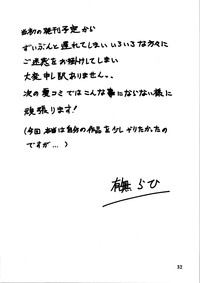 当初の発刊予定から
ずいぶんと遅れてしまい いろいろな方々に
ご迷惑をお掛けしてしまい
大変申し訳ありません。、
次の夏コミではこんな事にならない様に
頑張ります!
(今回 本当は自分の作品を少しやりたかったの
ですが…)
有無らひ
32